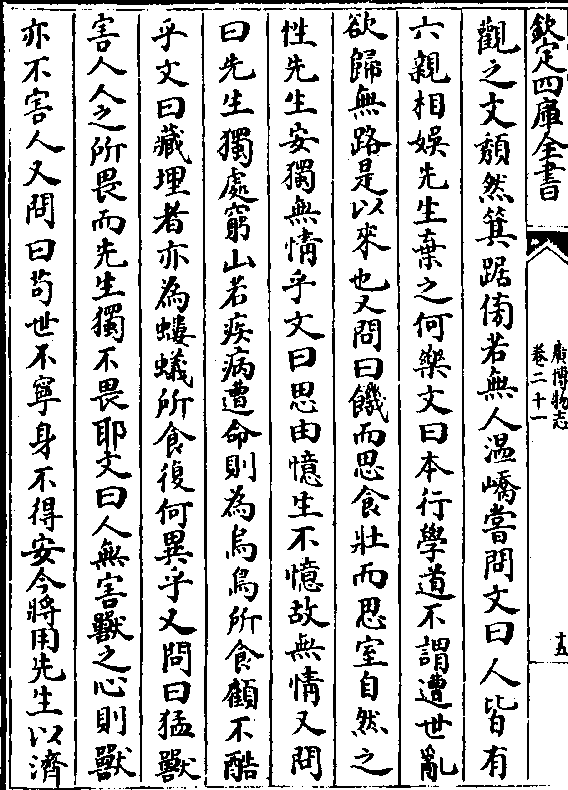 欽定四庫全書
廣博物志
卷二十一
十五
觀之文頽然箕踞傍若無人温嶠嘗問文曰人皆有
六親相娯先生棄之何樂文曰本行學道不謂遭世亂
欲歸無路是以來也又問曰饑而思食壯而思室自然之
性先生安獨無情乎文曰思由憶生不憶故無情又問
曰先生獨處窮山若疾病遭命則為烏鳥所食顧不酷
乎文曰藏埋者亦為螻蟻所食復何異乎又問曰猛獸
害人人之所畏而先生獨不畏耶文曰人無害獸之心則獸
亦不害人又問曰苟世不寧身不得安今將用先生以濟